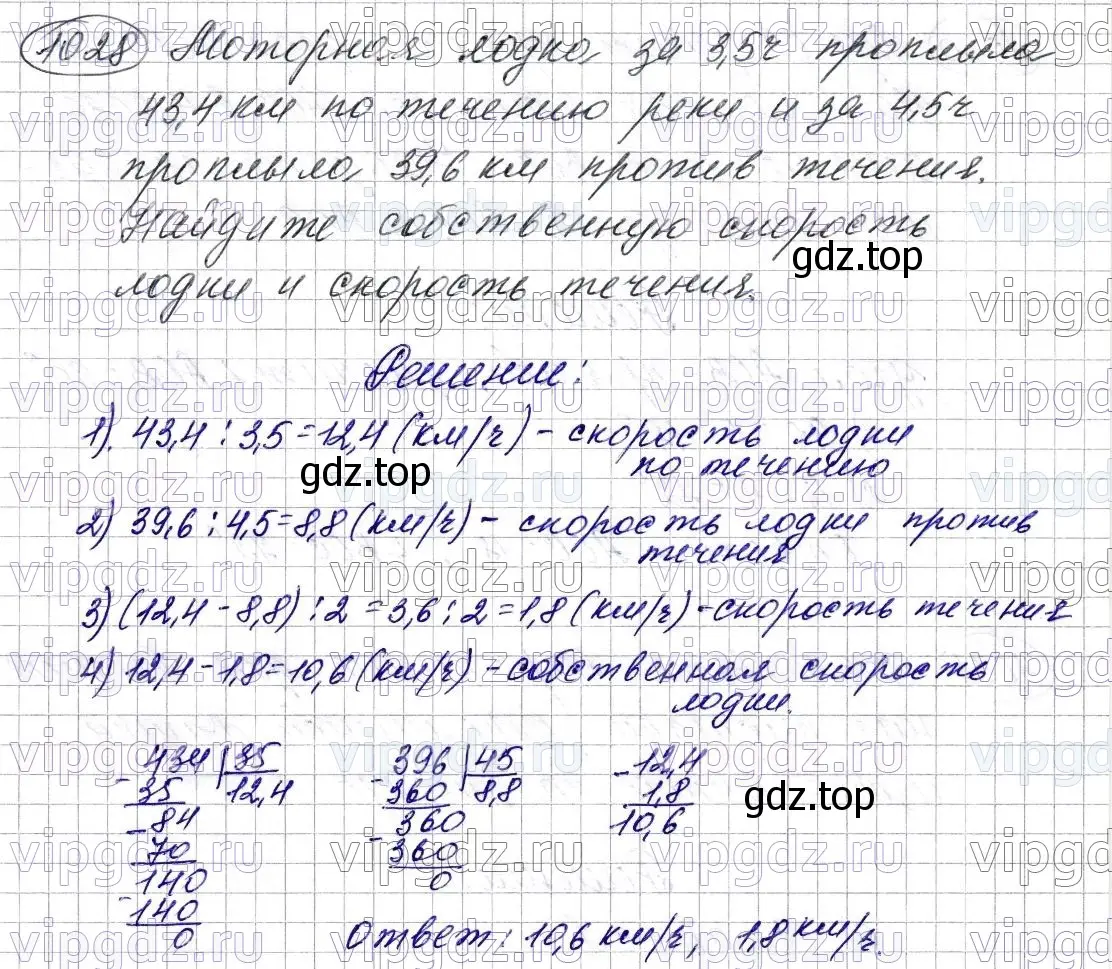 1028 Моторная лодка за 3,5ч проплыла
43,4 км по течению реки и за 4,5ч
проплыла 39,6 км против течения.
Найдите собственную скорость
лодки и скорость течения.
gdz.top
Решение:
1). 43,4 : 3,5 = 12,4 (км/ч) - скорость лодки
по течению
gdz.top
2) 39,6 : 4,5 = 8,8 (км/ч) - скорость лодки против
течения
3) (12,4 - 8,8) : 2 = 3,6 : 2 = 1,8 (км/ч) - скорость течения
4) 12,4 - 1,8 = 10,6 (км/ч) - собственная скорость
лодки.
434 35 396 45 - 12,4
- 35 12,4 - 360 8,8 1,8
- 84 360 10,6
gdz.top
70 - 360
140 0
- 140
0
Ответ: 10,6 км/ч, 1,8 км/ч.
vipgdz.ru